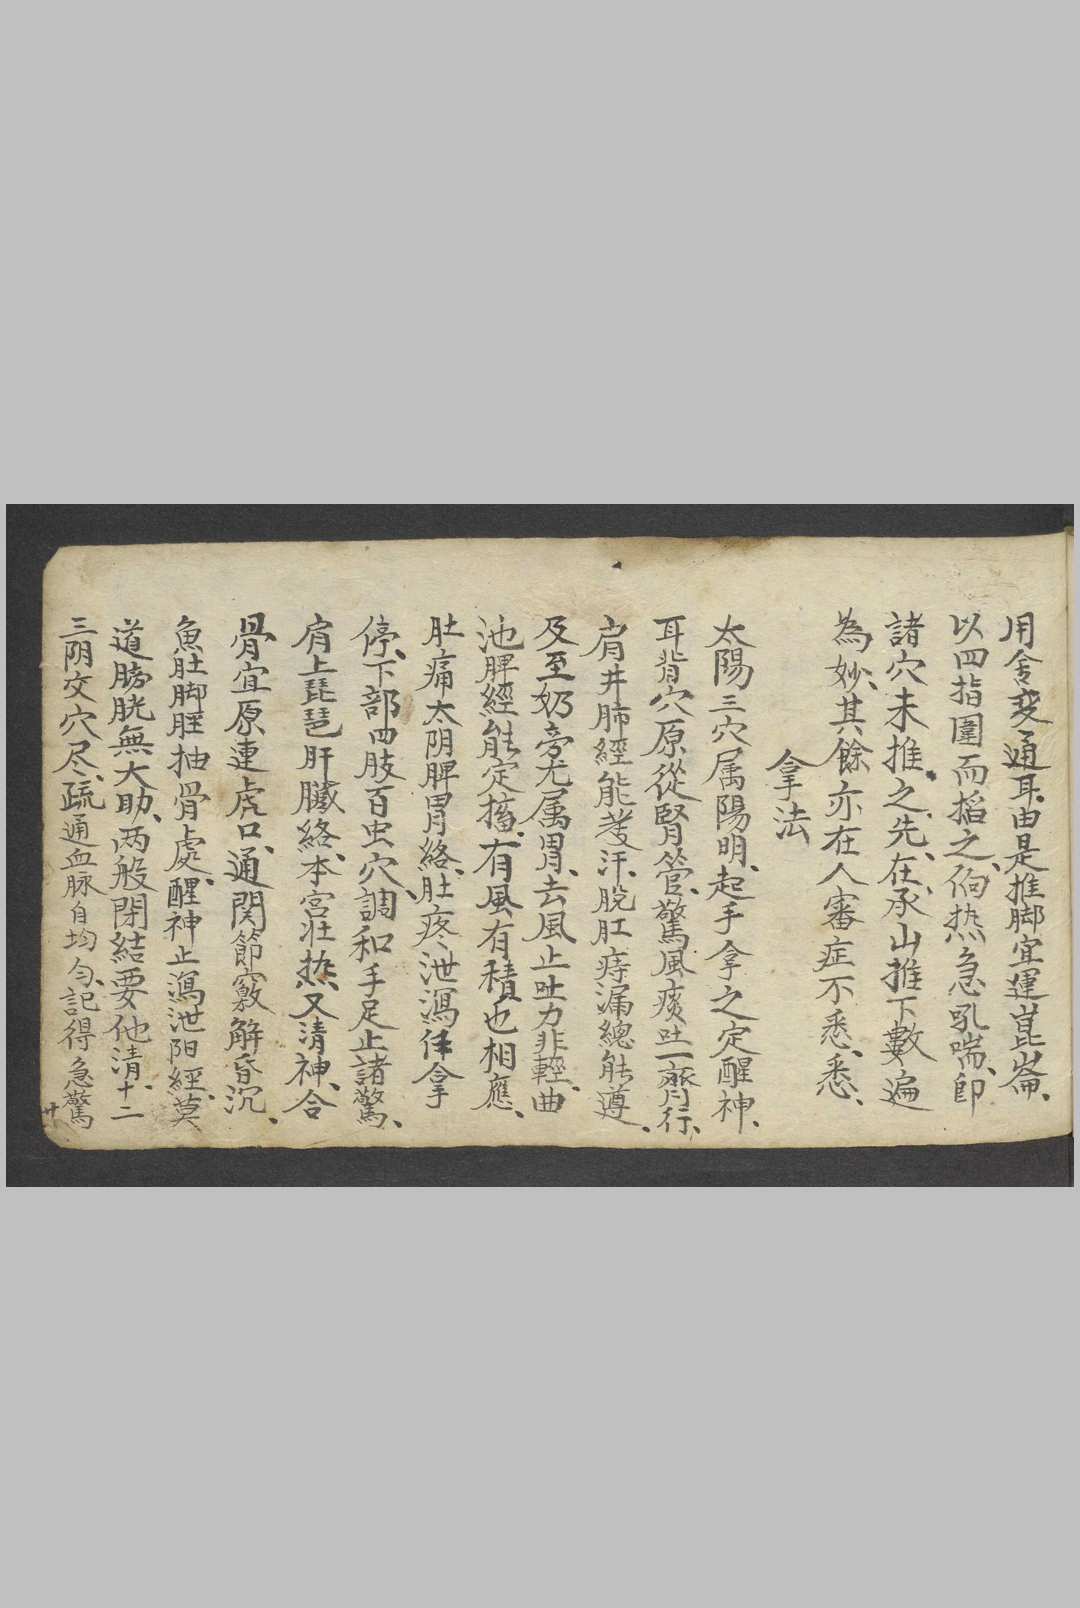 用舍变通耳由是推脚宜運崑崙
以四指圍而掐之痾热急吼喘即
諸穴未推之先在承山推下數遍
為妙其餘亦在人審症不悉悉
拿法
太陽三穴属陽明起手拿之定醒神
耳背穴原從腎管驚風痰吐一齊行
肩井肺經能發汗脱肛痔漏總能遵
及至奶旁尤属胃去風止吐力非輕曲
池脾經能定搐有風有積也相應
肚痛太阴脾胃絡肚疼泄瀉任拿
停下部四肢百虫穴調和手足止諸驚
肩上琵琶肝臟絡本宫壮热又清神合
骨宜原連虎口通関節竅解昏沉
魚肚脚脛抽骨處醒神止瀉泄阳經莫
道膀胱無大助两般閉結要他清十二
三阴交穴尽疏通血脉自均匀記得急驚
廿